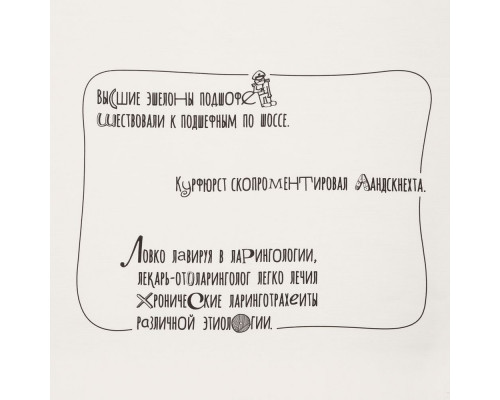 Высшие эшелоны подшофе
шествовали к подшефным по шоссе.
Курфюрст скопрометировал ландскнехта.
Ловко лавируя в ларингологии,
лекарь-отоларинголог легко лечил
хронические ларинготрахеиты
различной этиологии.